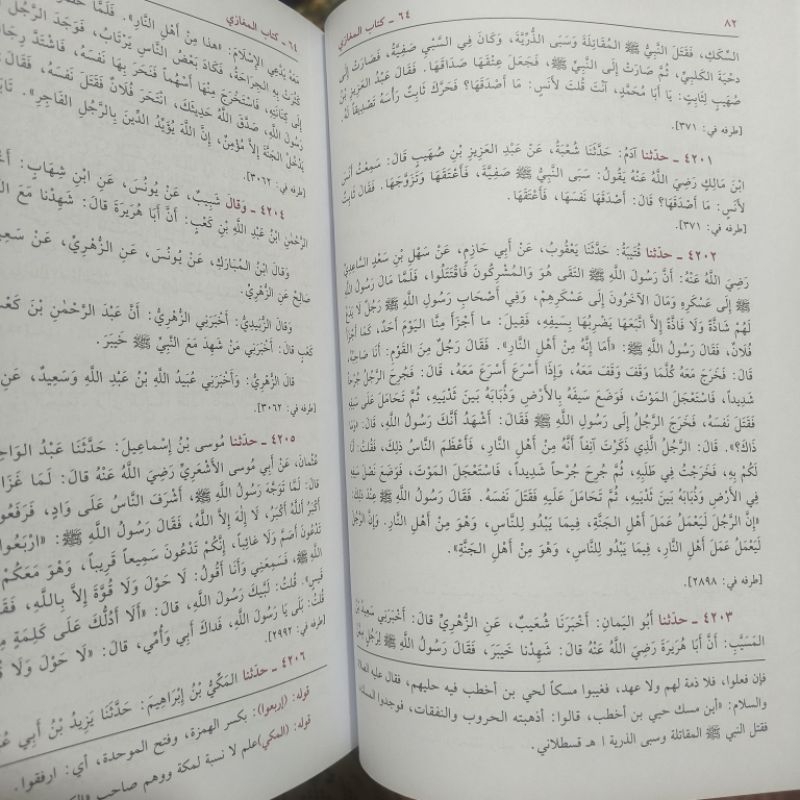 ٨٢
٦٤ - كتاب المغازي
السِّكَكِ، فَقَتَلَ النَّبِيُّ ﷺ المُقَاتِلَةَ وَسَبَى الذُّرِّيَّةَ، وَكَانَ فِي السَّبْيِ صَفِيَّةُ، فَصَارَتْ إِلَى
دِحْيَةَ الكَلْبِيِّ، ثُمَّ صَارَتْ إِلَى النَّبِيِّ ﷺ، فَجَعَلَ عِتْقَهَا صَدَاقَهَا. فَقَالَ عَبْدُ العَزِيزِ بْنُ
صُهَيْبٍ لِثَابِتٍ: يَا أَبَا مُحَمَّدٍ، آنْتَ قُلْتَ لأَنَسٍ: مَا أَصْدَقَهَا؟ فَحَرَّكَ ثَابِتٌ رَأْسَهُ تَصْدِيقاً لَهُ.
[طرفه في: ٣٧١].
٤٢٠١ - حدّثنا آدَمُ: حَدَّثَنَا شُعْبَةُ، عَنْ عَبْدِ العَزِيزِ بْنِ صُهَيْبٍ قَالَ: سَمِعْتُ أَنَسَ
ابْنَ مَالِكٍ رَضِيَ اللَّهُ عَنْهُ يَقُولُ: سَبَى النَّبِيُّ ﷺ صَفِيَّةَ، فَأَعْتَقَهَا وَتَزَوَّجَهَا. فَقَالَ ثَابِتٌ
لأَنَسٍ: مَا أَصْدَقَهَا؟ قَالَ: أَصْدَقَهَا نَفْسَهَا، فَأَعْتَقَهَا.
[طرفه في: ٣٧١].
٤٢٠٢ - حدّثنا قُتَيْبَةُ: حَدَّثَنَا يَعْقُوبُ، عَنْ أَبِي حَازِمٍ، عَنْ سَهْلِ بْنِ سَعْدٍ السَّاعِدِيِّ
رَضِيَ اللَّهُ عَنْهُ: أَنَّ رَسُولَ اللَّهِ ﷺ التَقَى هُوَ وَالمُشْرِكُونَ فَاقْتَتَلُوا، فَلَمَّا مَالَ رَسُولُ اللَّهِ
ﷺ إِلَى عَسْكَرِهِ وَمَالَ الآخَرُونَ إِلَى عَسْكَرِهِمْ، وَفِي أَصْحَابِ رَسُولِ اللَّهِ ﷺ رَجُلٌ لاَ يَدَعُ
لَهُمْ شَاذَّةً وَلاَ فَاذَّةً إِلاَّ اتَّبَعَهَا يَضْرِبُهَا بِسَيفِهِ، فَقِيلَ: ما أَجْزَأَ مِنَّا اليَوْمَ أَحَدٌ، كَمَا أَجْزَأَ
فُلاَنٌ، فَقَالَ رَسُولُ اللَّهِ ﷺ: «أَمَا إِنَّهُ مِنْ أَهْلِ النَّارِ». فَقَالَ رَجُلٌ مِنَ القَوْمِ: أَنَا صَاحِبُهُ،
قَالَ: فَخَرَجَ مَعَهُ كُلَّمَا وَقَفَ وَقَفَ مَعَهُ، وَإِذَا أَسْرَعَ أَسْرَعَ مَعَهُ، قَالَ: فَجُرِحَ الرَّجُلُ جُرْحاً
شَدِيداً، فَاسْتَعْجَلَ المَوْتَ، فَوَضَعَ سَيفَهُ بِالأَرْضِ وَذُبَابَهُ بَينَ ثَدْيَيهِ، ثُمَّ تَحَامَلَ عَلَى سَيفِهِ
فَقَتَلَ نَفْسَهُ، فَخَرَجَ الرَّجُلُ إِلَى رَسُولِ اللَّهِ ﷺ فَقَالَ: أَشْهَدُ أَنَّكَ رَسُولُ اللَّهِ، قَالَ: «وَمَا
ذَاكَ؟». قَالَ: الرَّجُلُ الَّذِي ذَكَرْتَ آنِفاً أَنَّهُ مِنْ أَهْلِ النَّارِ، فَأَعْظَمَ النَّاسُ ذلِكَ، فَقُلْتُ: أَنَا
لَكُمْ بِهِ، فَخَرَجْتُ فِي طَلَبِهِ، ثُمَّ جُرِحَ جُرْحاً شَدِيداً، فَاسْتَعْجَلَ المَوْتَ، فَوَضَعَ نَصْلَ سَيفِهِ
فِي الأَرْضِ وَذُبَابَهُ بَينَ ثَدْيَيهِ، ثُمَّ تَحَامَلَ عَلَيهِ فَقَتَلَ نَفْسَهُ. فَقَالَ رَسُولُ اللَّهِ ﷺ عِنْدَ ذلِكَ:
«إِنَّ الرَّجُلَ لَيَعْمَلُ عَمَلَ أَهْلِ الجَنَّةِ، فِيمَا يَبْدُو لِلنَّاسِ، وَهُوَ مِنْ أَهْلِ النَّارِ. وَإِنَّ الرَّجُلَ
لَيَعْمَلُ عَمَلَ أَهْلِ النَّارِ، فِيمَا يَبْدُو لِلنَّاسِ، وَهُوَ مِنْ أَهْلِ الجَنَّةِ».
[طرفه في: ٢٨٩٨].
٤٢٠٣ - حدّثنا أَبُو اليَمَانِ: أَخْبَرَنَا شُعَيْبٌ، عَنِ الزُّهْرِيِّ قَالَ: أَخْبَرَنِي سَعِيدُ بْنُ
المُسَيَّبِ: أَنَّ أَبَا هُرَيْرَةَ رَضِيَ اللَّهُ عَنْهُ قَالَ: شَهِدْنَا خَيْبَرَ، فَقَالَ رَسُولُ اللَّهِ ﷺ لِرَجُلٍ مِمَّنْ
فإن فعلوا، فلا ذمة لهم ولا عهد، فغيبوا مسكاً لحي بن أخطب فيه حليهم، فقال عليه الصلاة
والسلام: «أين مسك حيي بن أخطب، قالوا: أذهبته الحروب والنفقات، فوجدوا المسك
فقتل النبي ﷺ المقاتلة وسبى الذرية ا هـ قسطلاني.
٦٤ - كتاب المغازي
مَعَهُ يَدَّعِي الإِسْلاَمَ: «هذا مِنْ أَهْلِ النَّارِ». فَلَمَّا
كَثُرَتْ بِهِ الجِرَاحَةُ، فَكَادَ بَعْضُ النَّاسِ يَرْتَابُ، فَوَجَدَ الرَّجُلُ
إِلَى كِنَانَتِهِ، فَاسْتَخْرَجَ مِنْهَا أَسْهُماً فَنَحَرَ بِهَا نَفْسَهُ، فَاشْتَدَّ رِجَالٌ
رَسُولَ اللَّهِ، صَدَّقَ اللَّهُ حَدِيثَكَ، انْتَحَرَ فُلاَنٌ فَقَتَلَ نَفْسَهُ، فَقَالَ
يَدْخُلُ الجَنَّةَ إِلاَّ مُؤْمِنٌ، إِنَّ اللَّهَ يُؤَيِّدُ الدِّينَ بِالرَّجُلِ الفَاجِرِ».
[طرفه في: ٣٠٦٢].
٤٢٠٤ - وَقَالَ شَبِيبٌ، عَنْ يُونُسَ، عَنِ ابْنِ شِهَابٍ:
الرَّحْمٰنِ ابْنُ عَبْدِ اللَّهِ بْنِ كَعْبٍ: أَنَّ أَبَا هُرَيرَةَ قَالَ: شَهِدْنَا مَعَ
وَقَالَ ابْنُ المُبَارَكِ، عَنْ يُونُسَ، عَنِ الزُّهْرِيِّ، عَنْ سَعِيدٍ
صَالِحٌ عَنِ الزُّهْرِيِّ.
وَقَالَ الزُّبَيدِيُّ: أَخْبَرَنِي الزُّهْرِيُّ: أَنَّ عَبْدَ الرَّحْمٰنِ بْنَ كَعْبٍ
كَعْبٍ قالَ: أَخْبَرَنِي مَنْ شَهِدَ مَعَ النَّبِيِّ ﷺ خَيبَرَ.
قَالَ الزُّهْرِيُّ: وَأَخْبَرَنِي عُبَيدُ اللَّهِ بْنُ عَبْدِ اللَّهِ وَسَعِيدٌ، عَنِ
[طرفه في: ٣٠٦٢].
٤٢٠٥ - حدّثنا مُوسى بْنُ إِسْماعِيلَ: حَدَّثَنَا عَبْدُ الوَاحِدِ
عُثْمَانَ، عَنْ أَبِي مُوسى الأَشْعَرِيِّ رَضِيَ اللَّهُ عَنْهُ قَالَ: لَمَّا غَزَا
قَالَ: لَمَّا تَوَجَّهَ رَسُولُ اللَّهِ ﷺ، أَشْرَفَ النَّاسُ عَلَى وَادٍ، فَرَفَعُوا
أَكْبَرُ اللَّهُ أَكْبَرُ، لاَ إِلٰهَ إِلاَّ اللَّهُ، فَقَالَ رَسُولُ اللَّهِ ﷺ: «ارْبَعُوا
تَدْعُونَ أَصَمَّ وَلاَ غائِباً، إِنَّكُمْ تَدْعُونَ سَمِيعاً قَرِيباً، وَهُوَ مَعَكُمْ
اللَّهِ ﷺ، فَسَمِعَنِي وَأَنَا أَقُولُ: لاَ حَوْلَ وَلاَ قُوَّةَ إِلاَّ بِاللَّهِ، فَقَالَ
قَيسٍ». قُلْتُ: لَبَّيكَ رَسُولَ اللَّهِ، قَالَ: «أَلاَ أَدُلُّكَ عَلَى كَلِمَةٍ
قُلْتُ: بَلَى يَا رَسُولَ اللَّهِ، فَدَاكَ أَبِي وَأُمِّي، قَالَ: «لاَ حَوْلَ وَلاَ
[طرفه في: ٢٩٩٢].
٤٢٠٦ - حدّثنا المَكِّيُّ بْنُ إِبْرَاهِيمَ: حَدَّثَنَا يَزِيدُ بْنُ أَبِي
قوله: (إربعوا): بكسر الهمزة، وفتح الموحدة، أي: ارفقوا.
قوله: (المكي) علم لا نسبة لمكة ووهم صاحب